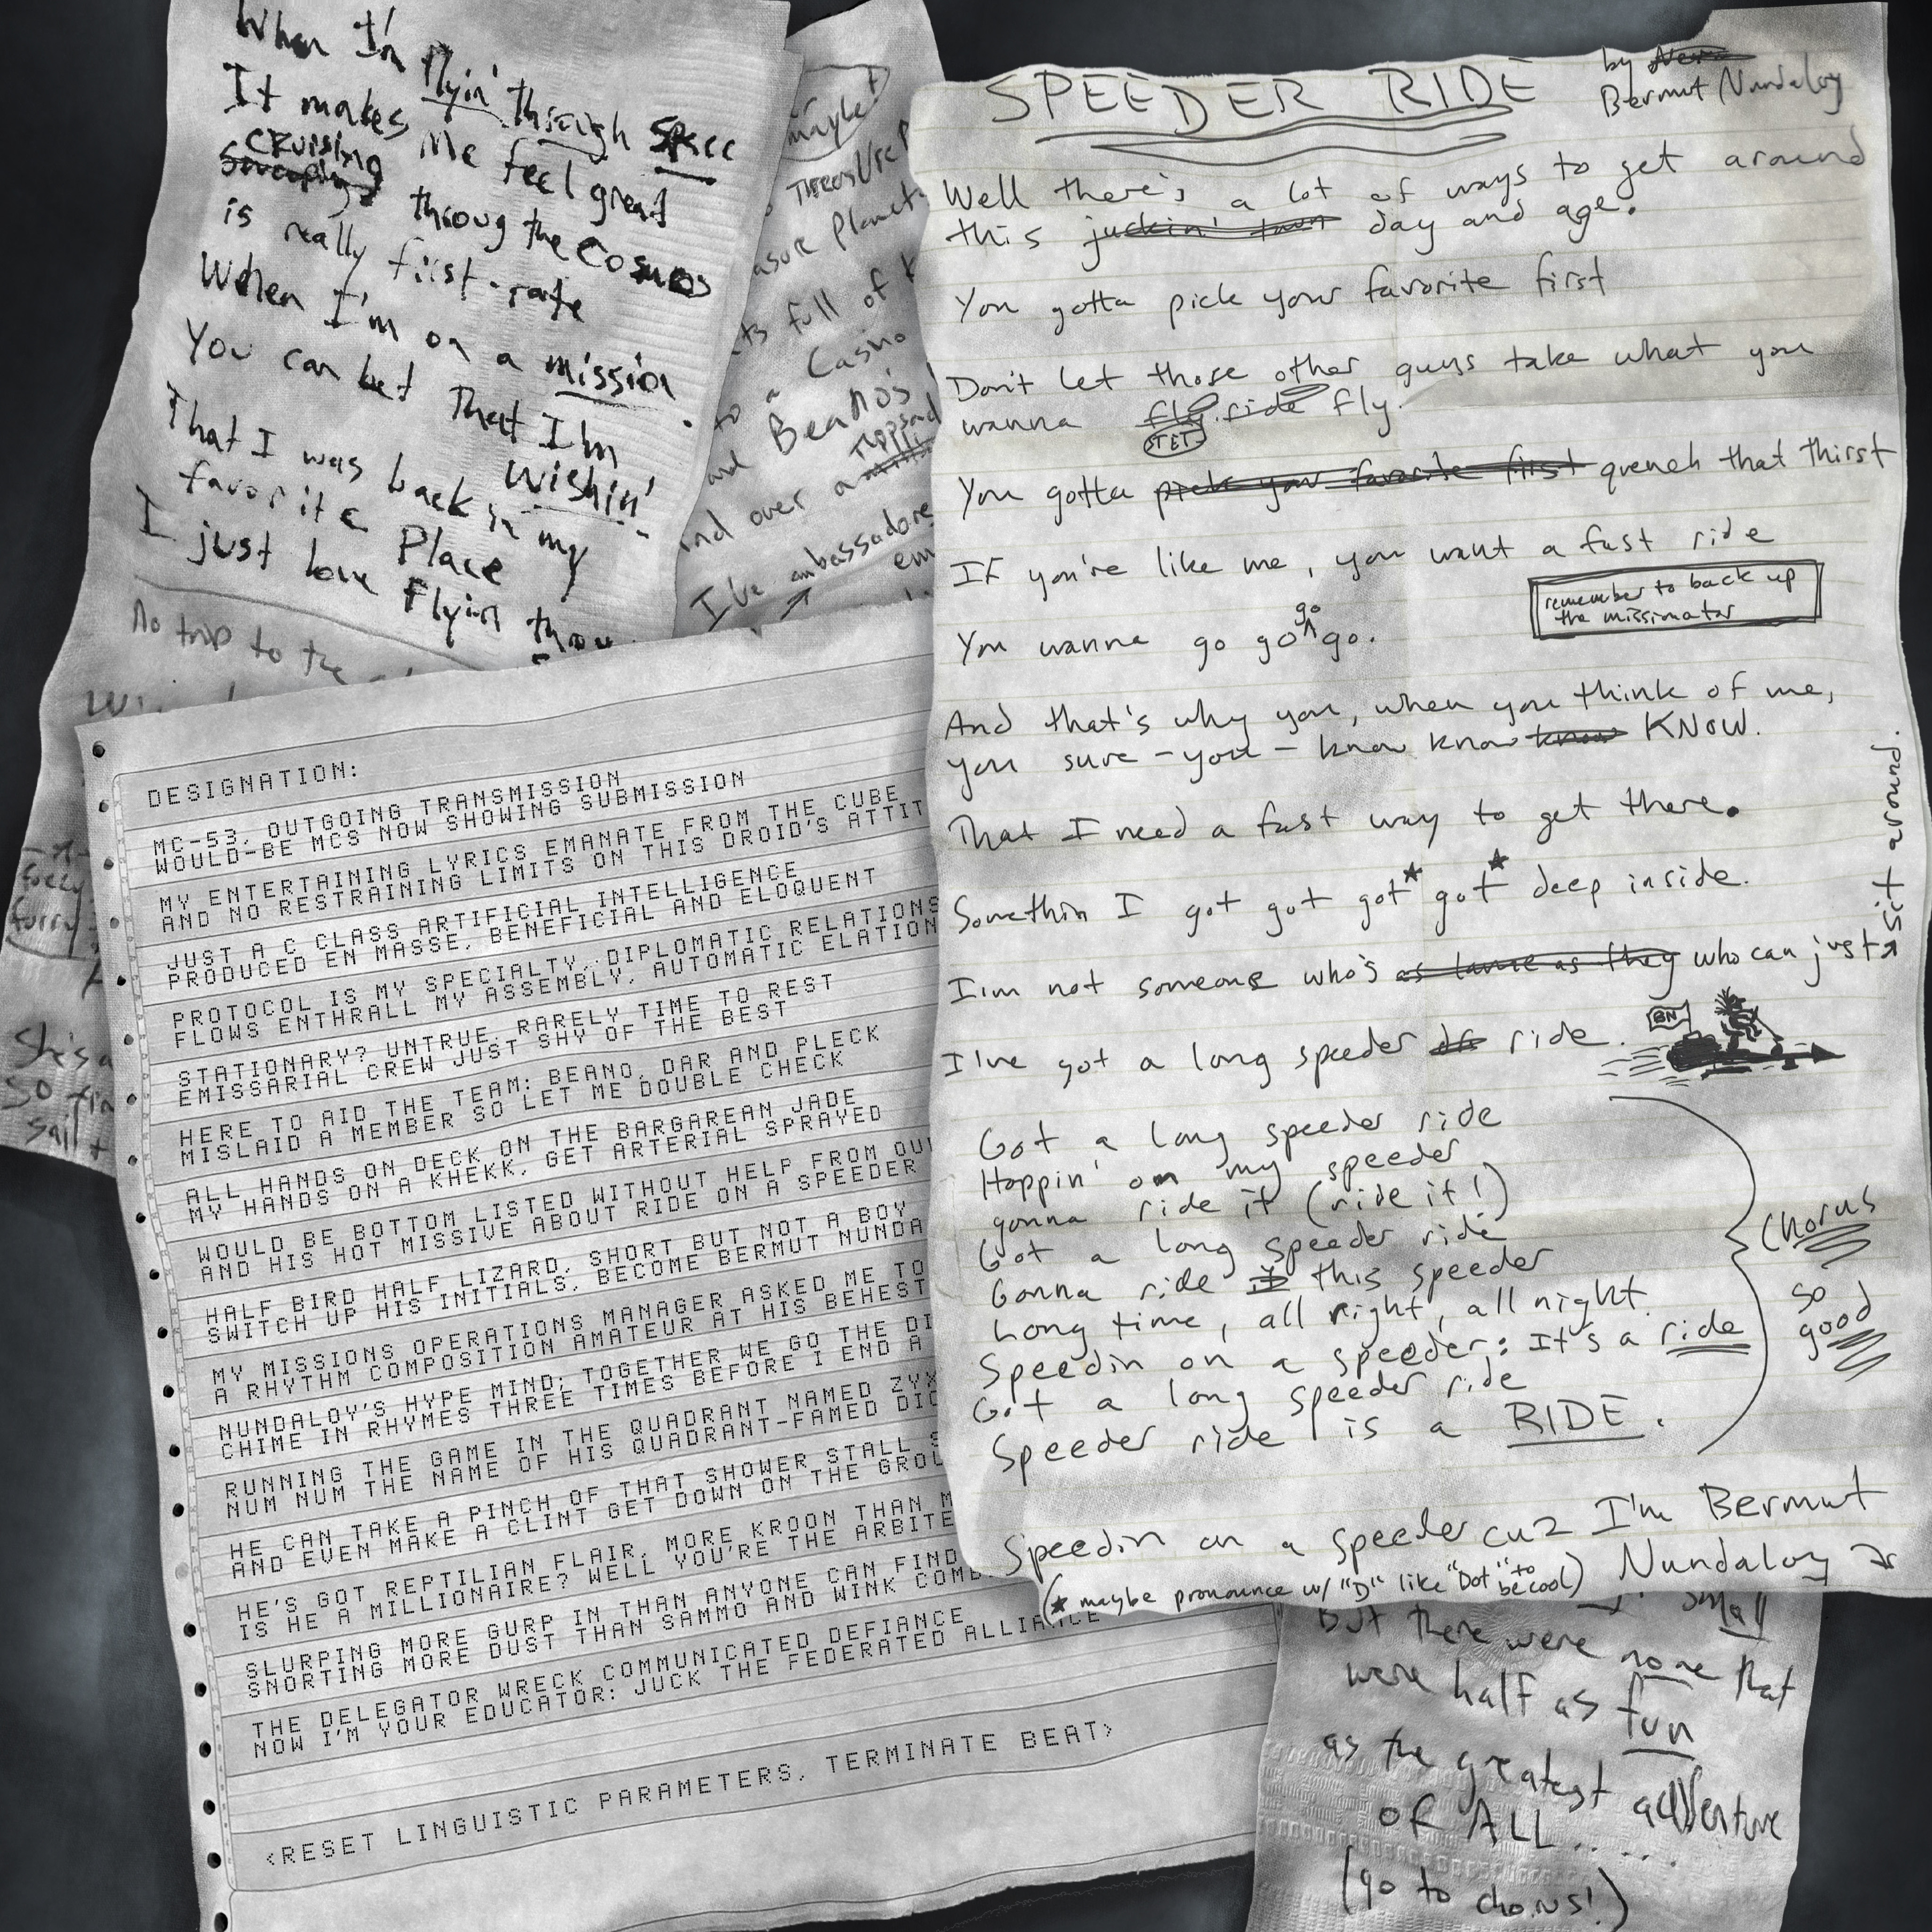 When I'm flyin' through space
It makes me feel great
cruising
throug the cosmos
is really first-rate
When I'm on a mission
You can bet That I'm
wishin'
That I was back in my
favorite Place
I just love flyin throu
No trip to the
maybe!
Treasure P
asure Planet
ts full of
to a Casino
and Beano's
nd over a
I've ambassadore
em
She's a
So fin
sail +
furry
SPEEDER RIDE
by
Bermut Nundaloy
Well there's a lot of ways to get around
this juckin' town day and age.
You gotta pick your favorite first
Don't let those other guys take what you
wanna fly ride fly.
STET
You gotta pick your favorite first quench that thirst
If you're like me, you want a fast ride
remember to back up
the missionator
go
You wanna go go^go.
And that's why you, when you think of me,
you sure - you - know know know KNOW.
That I need a fast way to get there.
Somethin I got got got* got* deep inside.
I'm not someone who's as lame as they who can just → sit around.
I've got a long speeder ride.
BN
Got a long speeder ride
Hoppin' on my speeder
gonna ride it (ride it!)
Got a long speeder ride
Gonna ride it this speeder
Long time, all right, all night.
Speedin on a speeder: It's a ride
Got a long speeder ride
Speeder ride is a RIDE.
Chorus
so
good
Speedin on a speeder cuz I'm Bermut
Nundaloy
(* maybe pronounce w/ "D" like "Dot" to be cool)
DESIGNATION:
MC-53, OUTGOING TRANSMISSION
WOULD-BE MCS NOW SHOWING SUBMISSION
MY ENTERTAINING LYRICS EMANATE FROM THE CUBE
AND NO RESTRAINING LIMITS ON THIS DROID'S ATTIT
JUST A C CLASS ARTIFICIAL INTELLIGENCE
PRODUCED EN MASSE, BENEFICIAL AND ELOQUENT
PROTOCOL IS MY SPECIALTY, DIPLOMATIC RELATIONS
FLOWS ENTHRALL MY ASSEMBLY, AUTOMATIC ELATION
STATIONARY? UNTRUE, RARELY TIME TO REST
EMISSARIAL CREW JUST SHY OF THE BEST
HERE TO AID THE TEAM: BEANO, DAR AND PLECK
MISLAID A MEMBER SO LET ME DOUBLE CHECK
ALL HANDS ON DECK ON THE BARGAREAN JADE
MY HANDS ON A KHEKK, GET ARTERIAL SPRAYED
WOULD BE BOTTOM LISTED WITHOUT HELP FROM OU
AND HIS HOT MISSIVE ABOUT RIDE ON A SPEEDER
HALF BIRD HALF LIZARD, SHORT BUT NOT A BOY
SWITCH UP HIS INITIALS, BECOME BERMUT NUNDA
MY MISSIONS OPERATIONS MANAGER ASKED ME TO
A RHYTHM COMPOSITION AMATEUR AT HIS BEHEST
NUNDALOY'S HYPE MIND; TOGETHER WE GO THE DI
CHIME IN RHYMES THREE TIMES BEFORE I END A
RUNNING THE GAME IN THE QUADRANT NAMED ZYX
NUM NUM THE NAME OF HIS QUADRANT-FAMED DIC
HE CAN TAKE A PINCH OF THAT SHOWER STALL S
AND EVEN MAKE A CLINT GET DOWN ON THE GROU
HE'S GOT REPTILIAN FLAIR, MORE KROON THAN M
IS HE A MILLIONAIRE? WELL YOU'RE THE ARBITE
SLURPING MORE GURP IN THAN ANYONE CAN FIND
SNORTING MORE DUST THAN SAMMO AND WINK COMB
THE DELEGATOR WRECK COMMUNICATED DEFIANCE
NOW I'M YOUR EDUCATOR: JUCK THE FEDERATED ALLIANCE
<RESET LINGUISTIC PARAMETERS, TERMINATE BEAT>
small
But there were none that
were half as fun
as the greatest adventure
OF ALL.....
(go to chorus!)